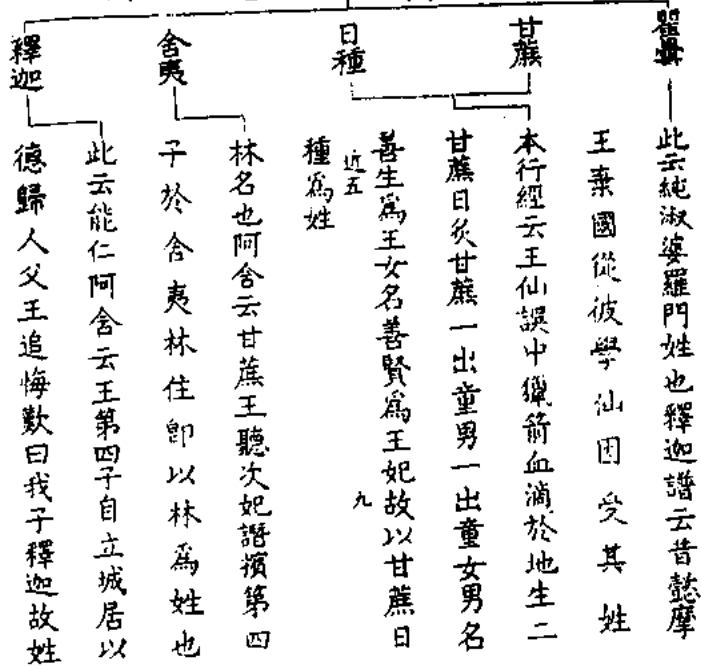 瞿曇
此云純淑婆羅門姓也釋迦譜云昔懿摩
王棄國從彼學仙因受其姓
甘蔗
本行經云王仙誤中獵箭血滴於地生二
甘蔗日炙甘蔗一出童男一出童女男名
善生爲王女名善賢爲王妃故以甘蔗日
近五
九
種爲姓
日種
舍夷
林名也阿含云甘蔗王聽次妃譖擯第四
子於舍夷林住卽以林爲姓也
釋迦
此云能仁阿含云王第四子自立城居以
德歸人父王追悔歎曰我子釋迦故姓